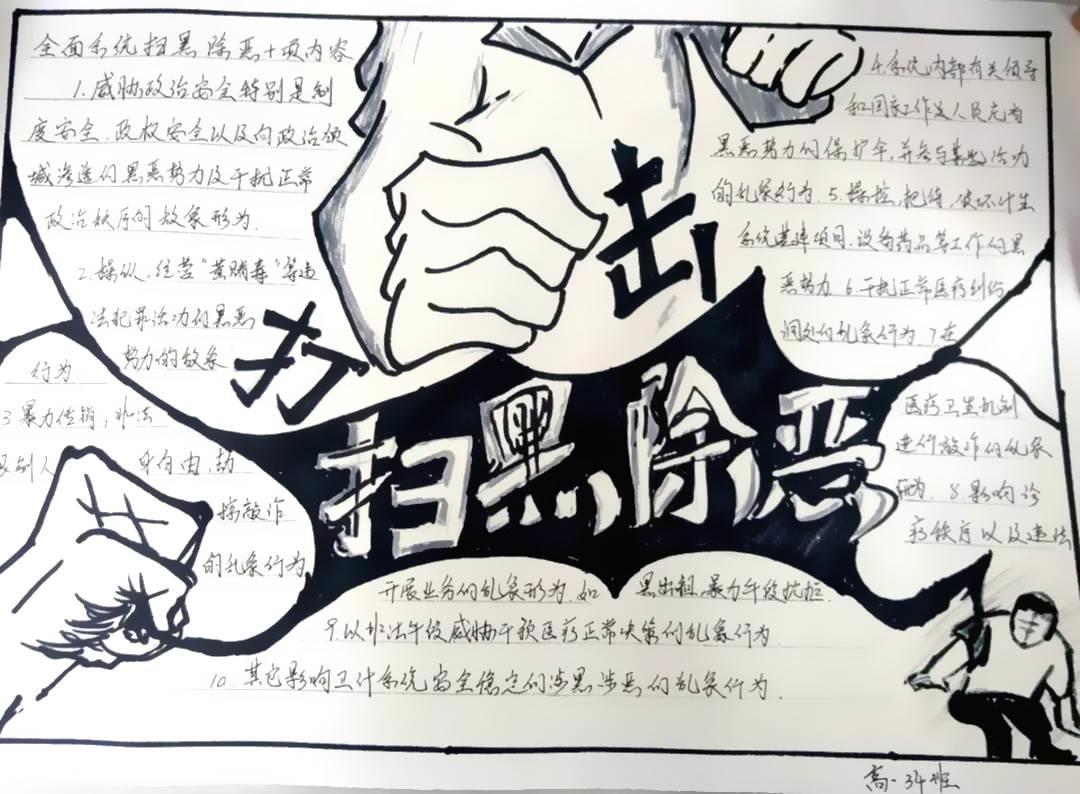 全面系统扫黑除恶十项内容
1.威胁政治安全特别是制
度安全、政权安全以及向政治领
域渗透的黑恶势力及干扰正常
政治秩序的放象形为.
2.操纵、经营"黄赌毒"等违
法犯罪活动的黑恶
势力的放象
行为
3暴力传销,非法
及别人 身自由,劫
擒敲诈
的乱象行为
打击
扫黑除恶
4.系统内部有关领导
和国家工作人员充当
黑恶势力的保护伞,并参与其他活动
的乱象行为.5.操控、把持、破坏计生
系统基建项目、设备药品等工作的黑
恶势力.6.干扰正常医疗纠纷
调处的乱象行为.7在
医疗卫生机制
进行敲诈的乱象
行为.8.影响诊
疗秩序以及违法
开展业务的乱象形为.如 黑出租、暴力手段抗拒.
9.以非法手段威胁干预医疗正常决策的乱象行为.
10.其它影响卫计系统安全稳定的涉黑涉恶的乱象行为.
高一34班